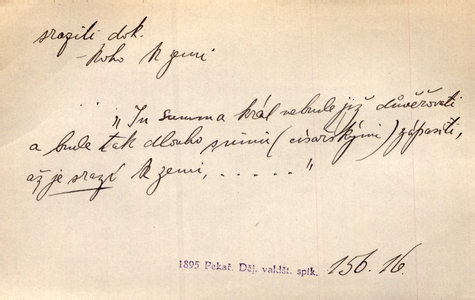 sraziti dok.
- koho k zemi
„In summa král nebude již důvěřovati
a bude tak dlouho s nimi (císařskými) zápasiti,
až je srazí k zemi, . . . . . "
1895 Pekař. Děj. valdšt. spik. 156. 16.